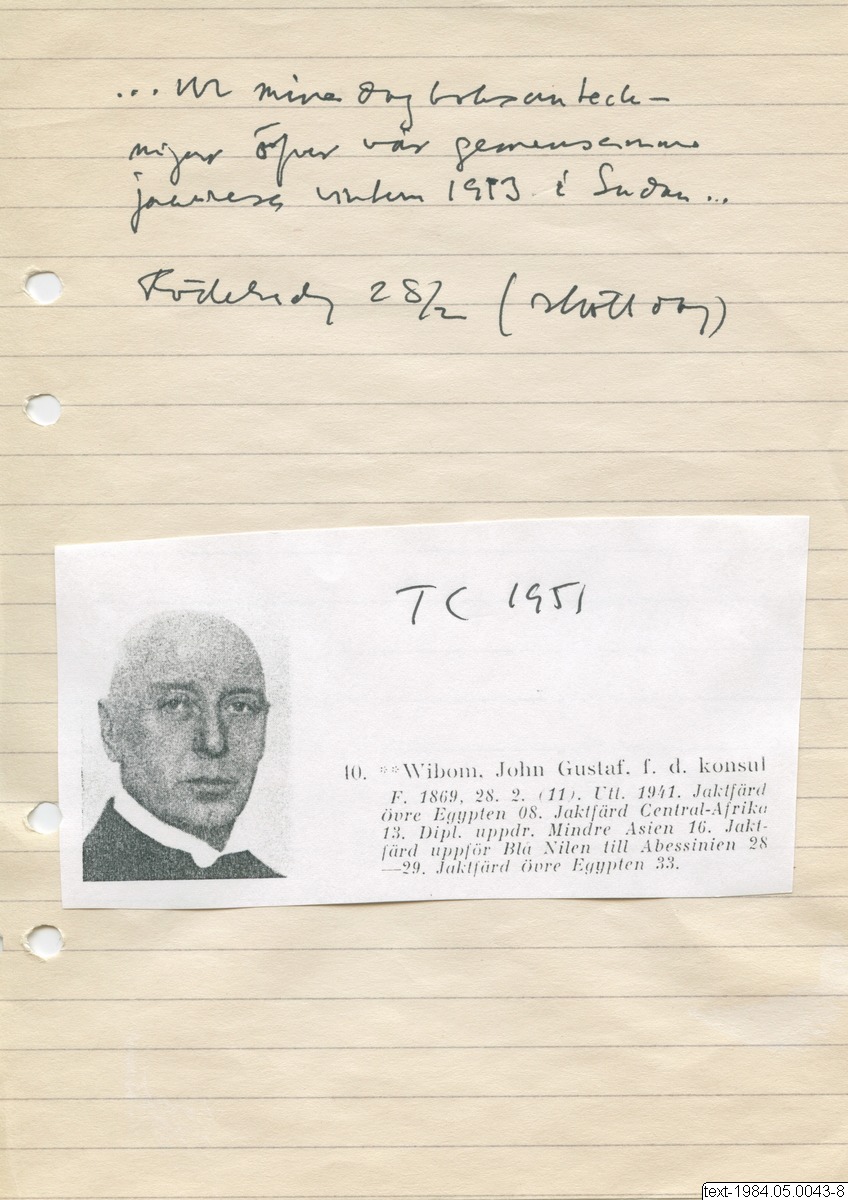 ... Ur mina dagboksanteck-
nigar öfver vår gemensamma
jaktresa vintern 1913 i Sudan ...
Födelsedag 28/2 (skottdag)
TC 1951
10. **Wibom, John Gustaf, f. d. konsul
F. 1869, 28. 2. (11). Utt. 1941. Jaktfärd
övre Egypten 08. Jaktfärd Central-Afrika
13. Dipl. uppdr. Mindre Asien 16. Jakt-
färd uppför Blå Nilen till Abessinien 28
—29. Jaktfärd övre Egypten 33.
text-1984.05.0043-8